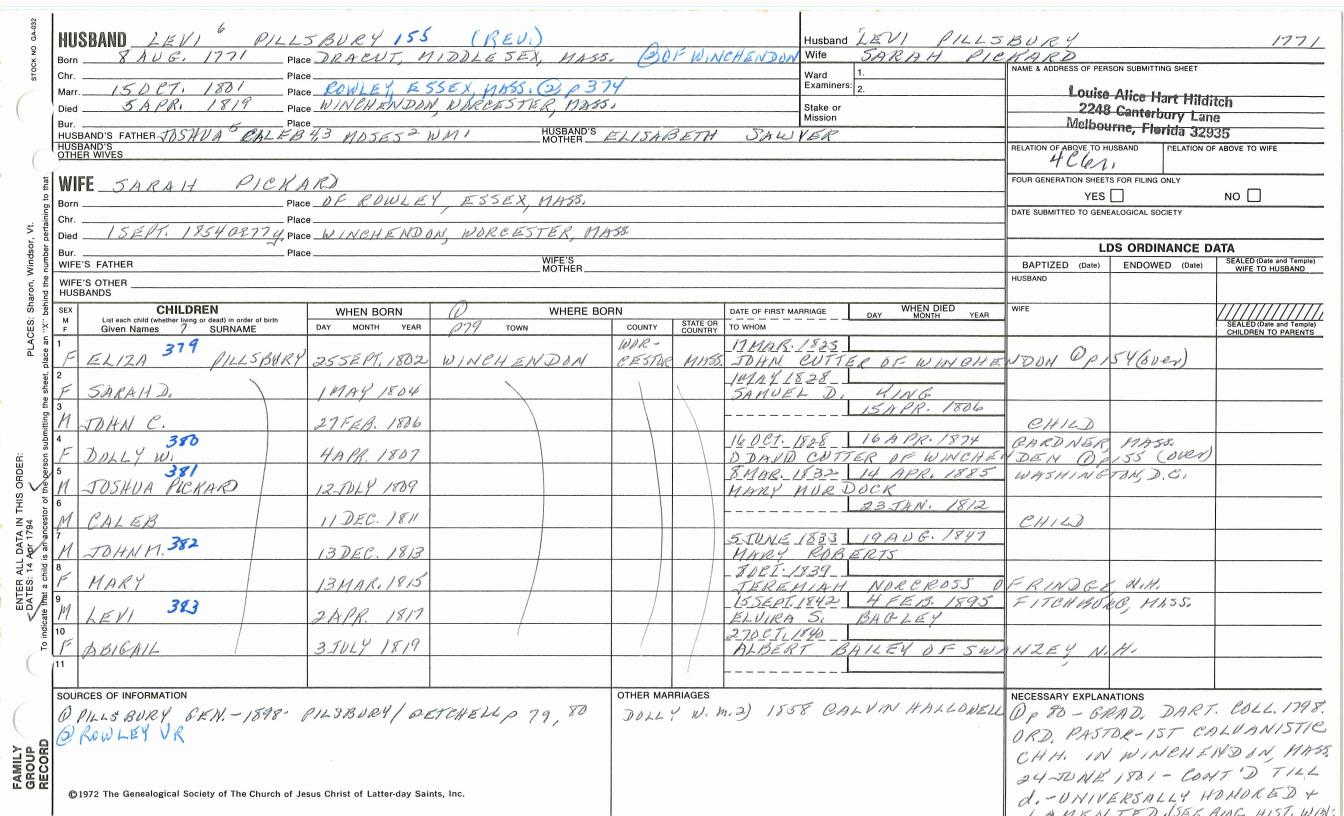 STOCK NO. GA-032
HUSBAND LEVI 6 PILLSBURY 155 (REV.)
Born 8 AUG. 1771 Place DRACUT, MIDDLESEX, MASS. ② OF WINCHENDON
Chr. Place
Marr. 15 OCT. 1801 Place ROWLEY, ESSEX, MASS. ② p 374
Died 5 APR. 1819 Place WINCHENDON, WORCESTER, MASS.
Bur. Place
HUSBAND'S FATHER JOSHUA 5 CALEB 4,3 MOSES 2 WM 1 HUSBAND'S MOTHER ELISABETH SAWYER
HUSBAND'S OTHER WIVES
Husband LEVI PILLSBURY 1771
Wife SARAH PICKARD
Ward Examiners: 1. 2.
Stake or Mission
NAME & ADDRESS OF PERSON SUBMITTING SHEET
Louise Alice Hart Hilditch
2248 Canterbury Lane
Melbourne, Florida 32935
RELATION OF ABOVE TO HUSBAND RELATION OF ABOVE TO WIFE
FOUR GENERATION SHEETS FOR FILING ONLY
YES NO
DATE SUBMITTED TO GENEALOGICAL SOCIETY
WIFE SARAH PICKARD
Born Place OF ROWLEY, ESSEX, MASS.
Chr. Place
Died 1 SEPT. 1854 Place WINCHENDON, WORCESTER, MASS
Bur. Place
WIFE'S FATHER WIFE'S MOTHER
WIFE'S OTHER HUSBANDS
LDS ORDINANCE DATA
BAPTIZED (Date) ENDOWED (Date) SEALED (Date and Temple) WIFE TO HUSBAND
HUSBAND
WIFE
SEALED (Date and Temple) CHILDREN TO PARENTS
SEX M F CHILDREN WHEN BORN ① WHERE BORN DATE OF FIRST MARRIAGE WHEN DIED
List each child (whether living or dead) in order of birth
Given Names 7 SURNAME DAY MONTH YEAR p79 TOWN COUNTY STATE OR COUNTRY TO WHOM DAY MONTH YEAR
1 379 WOR- 17 MAR. 1825
F ELIZA PILLSBURY 25 SEPT. 1802 WINCHENDON CESTOR MASS. JOHN CUTTER OF WINCHENDON ① p 154 (over)
2 1 MAY 1828
F SARAH D. 1 MAY 1804 SAMUEL D. KING
3 15 APR. 1806
M JOHN C. 27 FEB. 1806 CHILD
4 380 16 OCT. 1828 16 APR. 1874 GARDNER, MASS.
F DOLLY W. 4 APR. 1807 D DAVID CUTTER OF WINCHENDEN ① p 155 (over)
5 381 8 MAR. 1832 14 APR. 1885 WASHINGTON, D.C.
M JOSHUA PICKARD 12 JULY 1809 MARY MURDOCK
6 23 JAN. 1812
M CALEB 11 DEC. 1811 CHILD
7 382 5 JUNE 1833 19 AUG. 1847
M JOHN M. 13 DEC. 1813 MARY ROBERTS
8 8 OCT. 1839
F MARY 13 MAR. 1815 JEREMIAH NORCROSS OF RINDGE N.H.
9 383 15 SEPT. 1842 4 FEB. 1895 FITCHBURG, MASS.
M LEVI 2 APR. 1817 ELVIRA S. BAGLEY
10 27 OCT. 1840
F ABIGAIL 3 JULY 1819 ALBERT BAILEY OF SWANZEY, N.H.
11
SOURCES OF INFORMATION
① PILLSBURY GEN. - 1898 - PILSBURY / GETCHELL p 79, 80
② ROWLEY VR
OTHER MARRIAGES
DOLLY W. m. 2) 1858 CALVIN HALLOWELL
NECESSARY EXPLANATIONS
① p 80 - GRAD. DART. COLL. 1798.
ORD. PASTOR - 1ST CALVANISTIC
CHH. IN WINCHENDON, MASS.
24 JUNE 1801 - CONT'D TILL
d. - UNIVERSALLY HONORED +
LAMENTED.
©1972 The Genealogical Society of The Church of Jesus Christ of Latter-day Saints, Inc.
FAMILY GROUP RECORD
ENTER ALL DATA IN THIS ORDER:
DATES: 14 Apr 1794
PLACES: Sharon, Windsor, Vt.
To indicate that a child is an ancestor of the person submitting the sheet, place an "X" behind the number pertaining to that